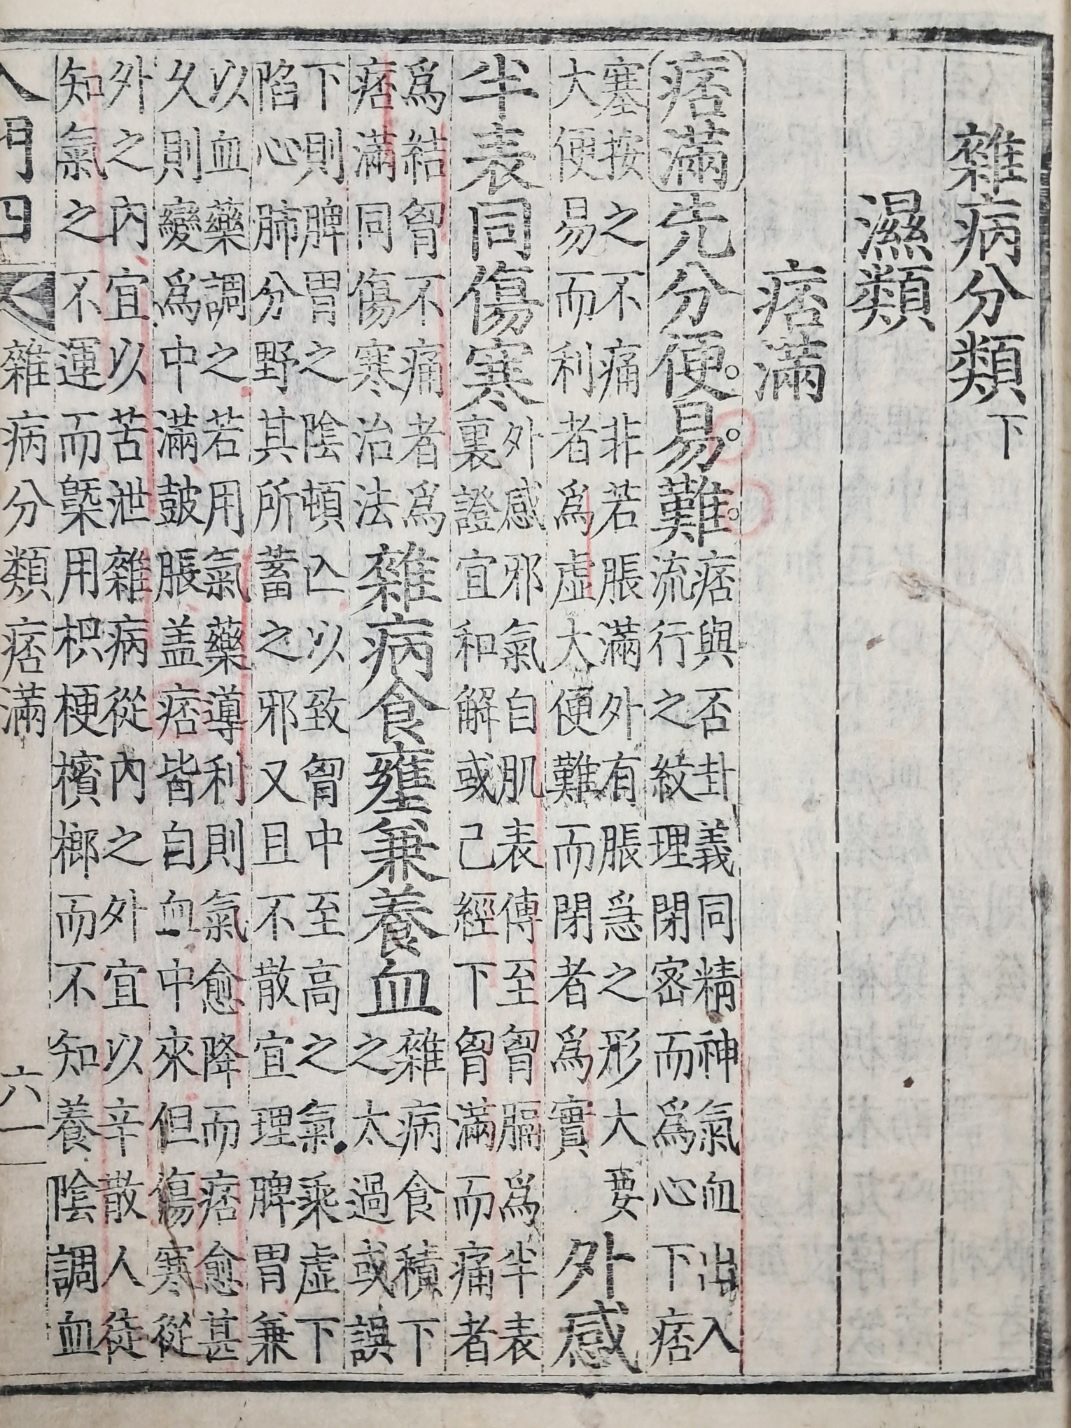 雜病分類下
濕類
痞滿
痞滿先分便易難
痞與否卦義同精神氣血出入
流行之紋理閉密而爲心下痞
塞按之不痛非若脹滿外有脹急之形大要
大便易而利者爲虛大便難而閉者爲實
外感
半表同傷寒
外感邪氣自肌表傳至胷膈爲半表
裏證宜和解或已經下胷滿而痛者
爲結胷不痛者爲
痞滿同傷寒治法
雜病食壅兼養血
雜病食積下
之太過或誤
下則脾胃之陰頓亾以致胷中至高之氣乘虛下
陷心肺分野其所蓄之邪又且不散宜理脾胃兼
以血藥調之若用氣藥導利則氣愈降而痞愈甚
久則變爲中滿鼓脹盖痞皆自血中來但傷寒從
外之內宜以苦泄雜病從內之外宜以辛散人徒
知氣之不運而槩用枳梗檳榔而不知養陰調血
入門四 雜病分類 痞滿 六一